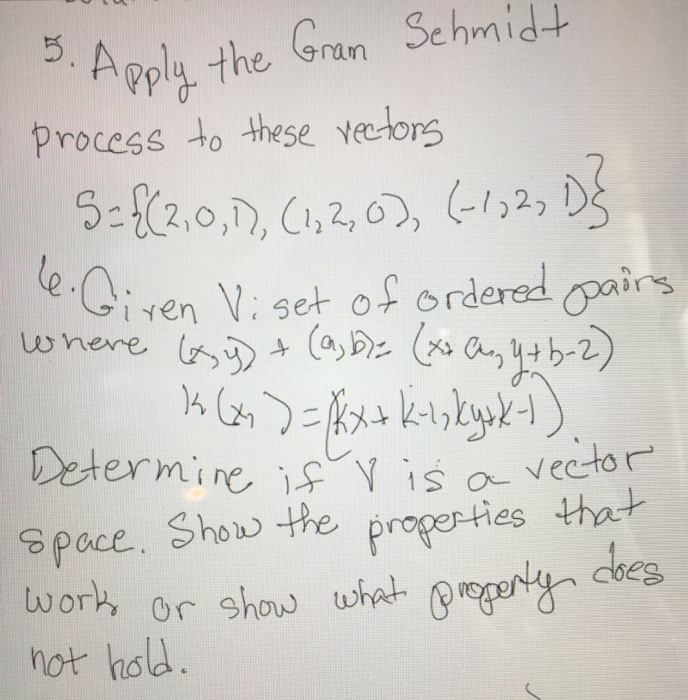 5. Apply the Gram Schmidt
process to these vectors
S={(2,0,1), (1,2,0), (-1,2,1)}
6. Given V: set of ordered pairs
where (x,y) + (a,b)= (x+a, y+b-2)
k(x, )=(kx+k-1,ky+k-1)
Determine if V is a vector
space. Show the properties that
work or show what property does
not hold.